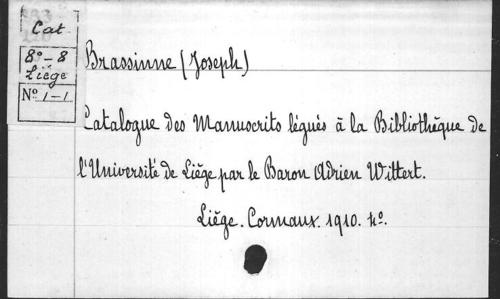 Cat.
8º-8
Liége
Nº 1-1
Brassinne (Joseph)
Catalogue des Manuscrits légués à la Bibliothèque de
l'Université de Liége par le Baron Adrien Wittert.
Liége. Cormaux. 1910. 4º.